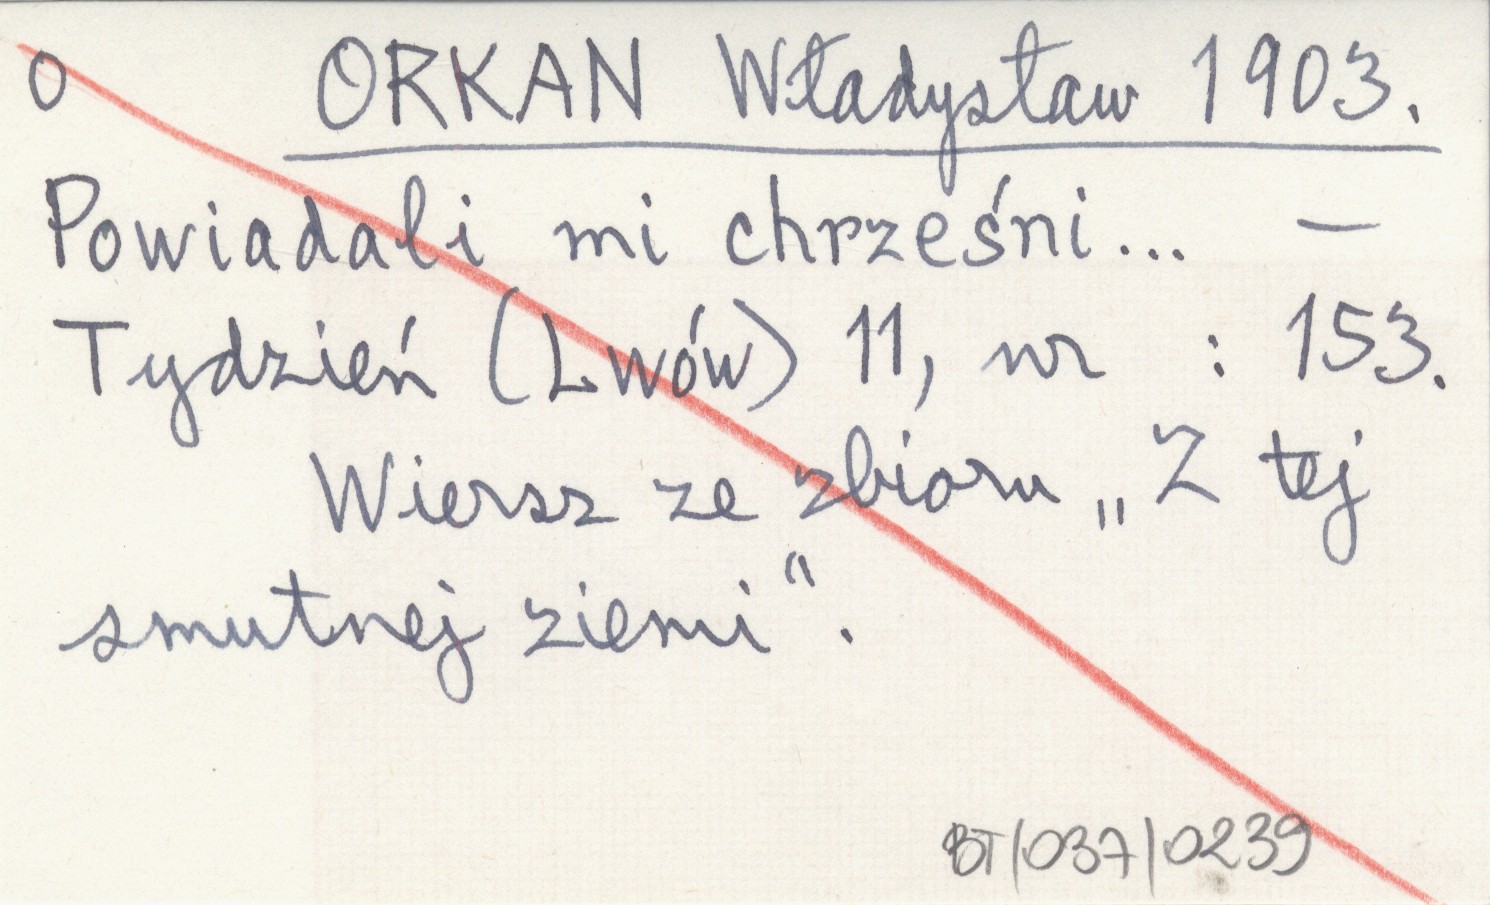 O ORKAN Władysław 1903.
Powiadali mi chrześni... —
Tydzień (Lwów) 11, nr : 153.
Wiersz ze zbioru „Z tej
smutnej ziemi".
BT/037/0239